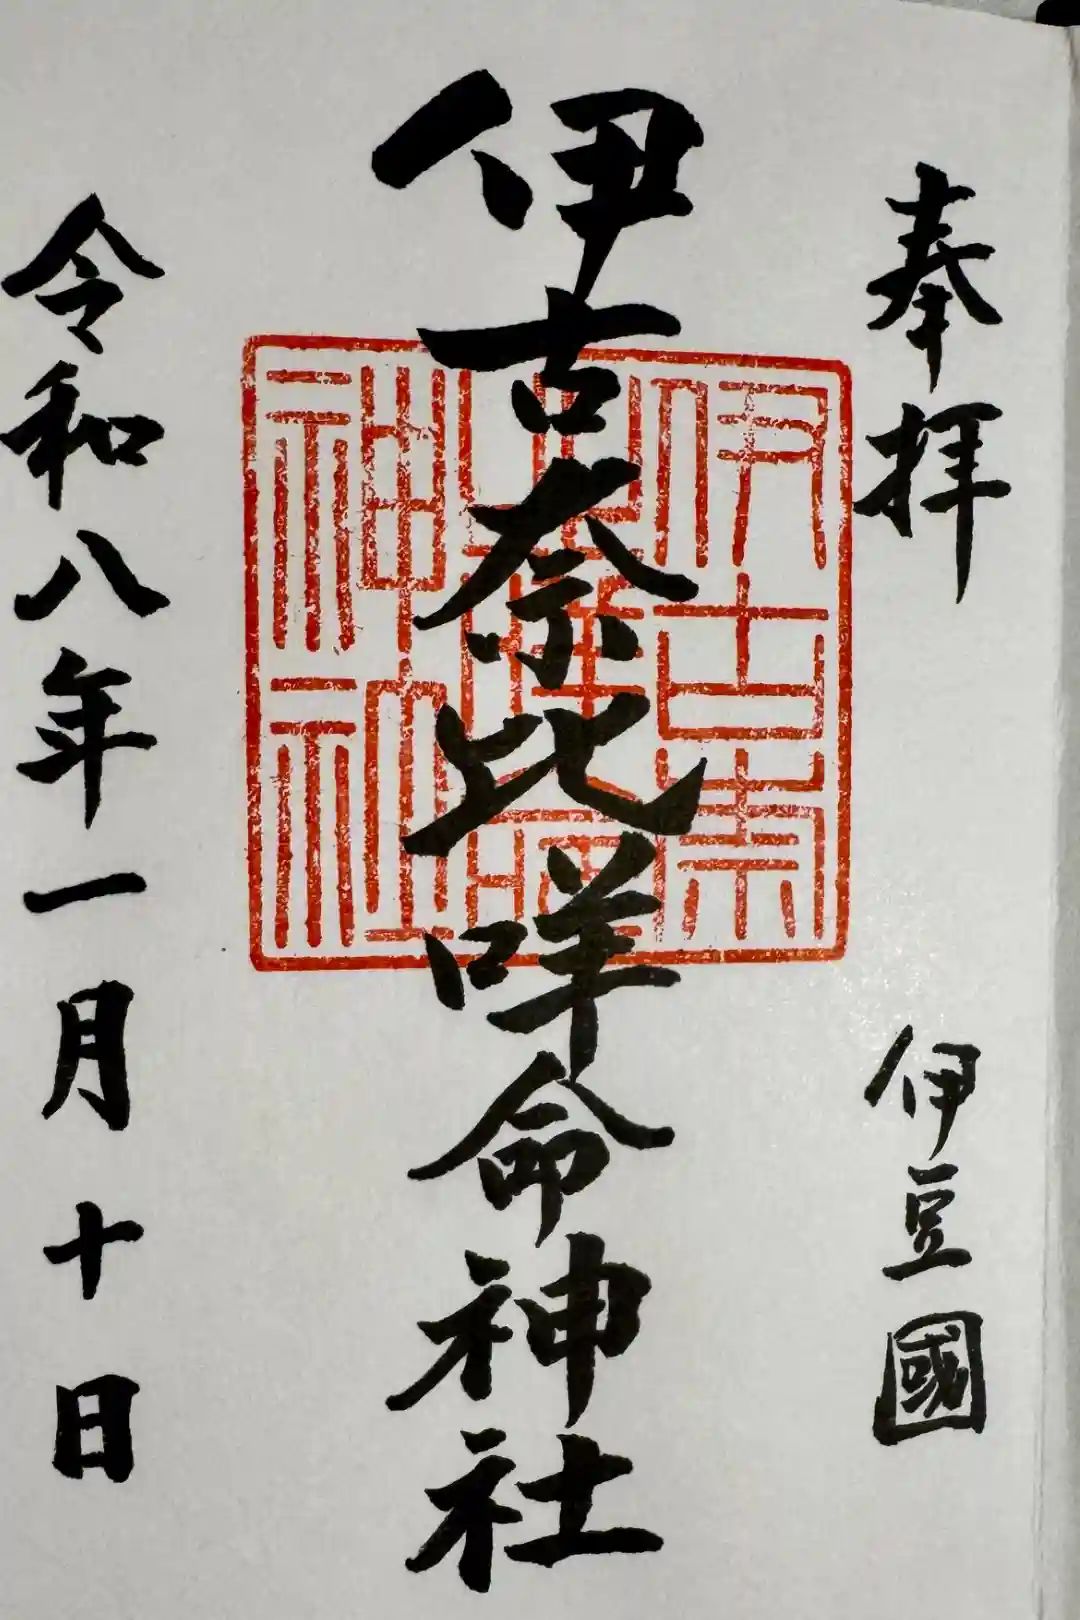 奉拝　伊豆國
伊古奈比咩命神社
令和八年一月十日
伊古奈
比咩命
神社